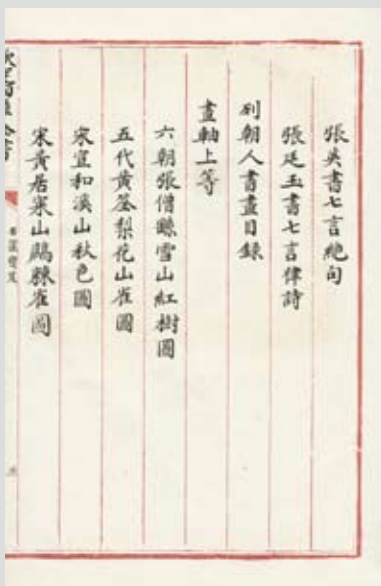 張英書七言絶句
張廷玉書七言律詩
列朝人書畫目錄
畫軸上等
六朝張僧繇雪山紅樹圖
五代黄筌梨花山雀圖
宋宣和溪山秋色圖
宋黄居寀山鷓棘雀圖